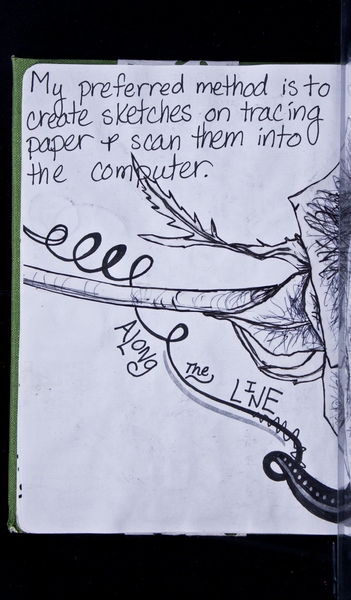 My preferred method is to
create sketches on tracing
paper & scan them into
the computer.
ALONG
The
LINE